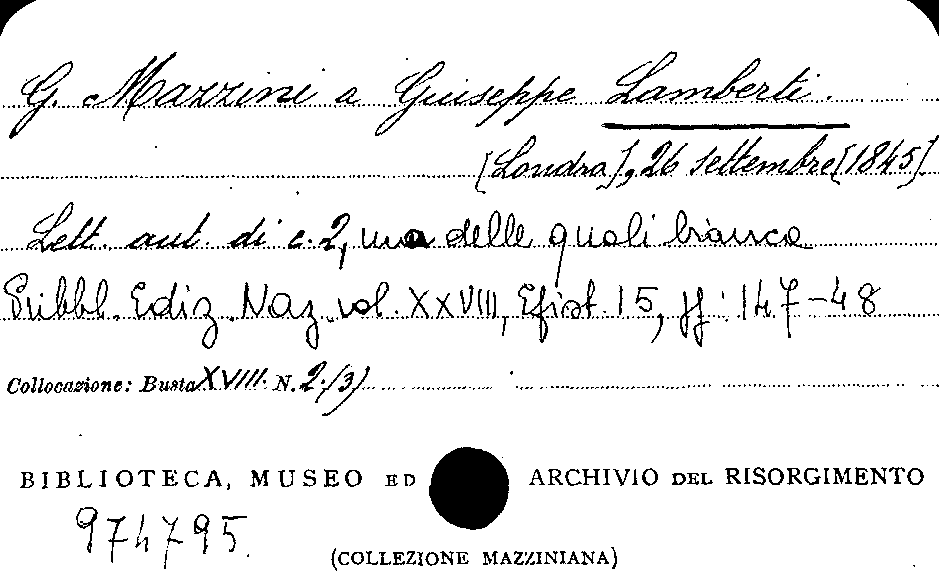 G. Mazzini a Giuseppe Lamberti.
[Londra], 26 settembre [1845]
Lett. aut. di c. 2, una delle quali bianca
Pubbl. Ediz. Naz. vol. XXVIII, Epist. 15, pp: 147-48
Collocazione: Busta XVIII. N. 2/3)
BIBLIOTECA, MUSEO ED ARCHIVIO DEL RISORGIMENTO
974795.
(COLLEZIONE MAZZINIANA)